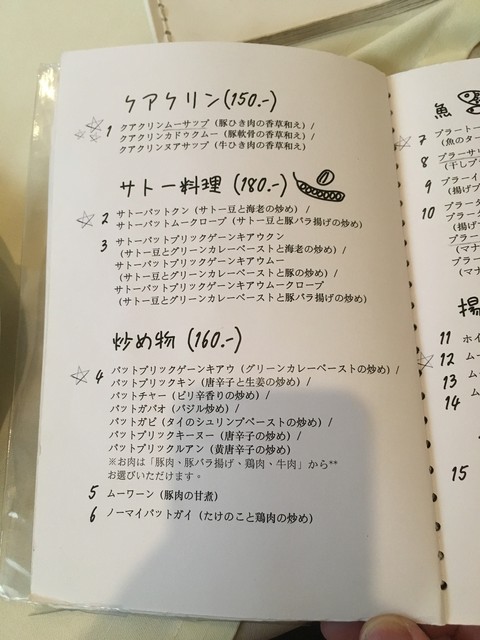 ケアクリン(150.-)
1 クアクリンムーサップ（豚ひき肉の香草和え）/
クアクリンカドゥクムー（豚軟骨の香草和え）/
クアクリンヌアサップ（牛ひき肉の香草和え）
サトー料理 (180.-)
2 サトーパットクン（サトー豆と海老の炒め）/
サトーパットムークローブ（サトー豆と豚バラ揚げの炒め）
3 サトーパットプリックゲーンキアウクン
（サトー豆とグリーンカレーペーストと海老の炒め）/
サトーパットプリックゲーンキアウムー
（サトー豆とグリーンカレーペーストと豚の炒め）/
サトーパットプリックゲーンキアウムークローブ
（サトー豆とグリーンカレーペーストと豚バラ揚げの炒め）
炒め物 (160.-)
4 パットプリックゲーンキアウ（グリーンカレーペーストの炒め）/
パットプリックキン（唐辛子と生姜の炒め）/
パットチャー（ピリ辛香りの炒め）/
パットガパオ（バジル炒め）/
パットガピ（タイのシュリンプペーストの炒め）/
パットプリックキーヌー（唐辛子の炒め）/
パットプリックルアン（黄唐辛子の炒め）
※お肉は「豚肉、豚バラ揚げ、鶏肉、牛肉」から**
お選びいただけます。
5 ムーワーン（豚肉の甘煮）
6 ノーマイパットガイ（たけのこと鶏肉の炒め）
魚
7 プラートー
（魚のター
8 プラーサ
（干しプ
9 プラーイ
（揚げプ
10 プラータ
プラータ
（揚げ
プラー
（マナ
プラー
（マナ
揚
11 ホイ
12 ムー
13 ムー
14 ムー
15